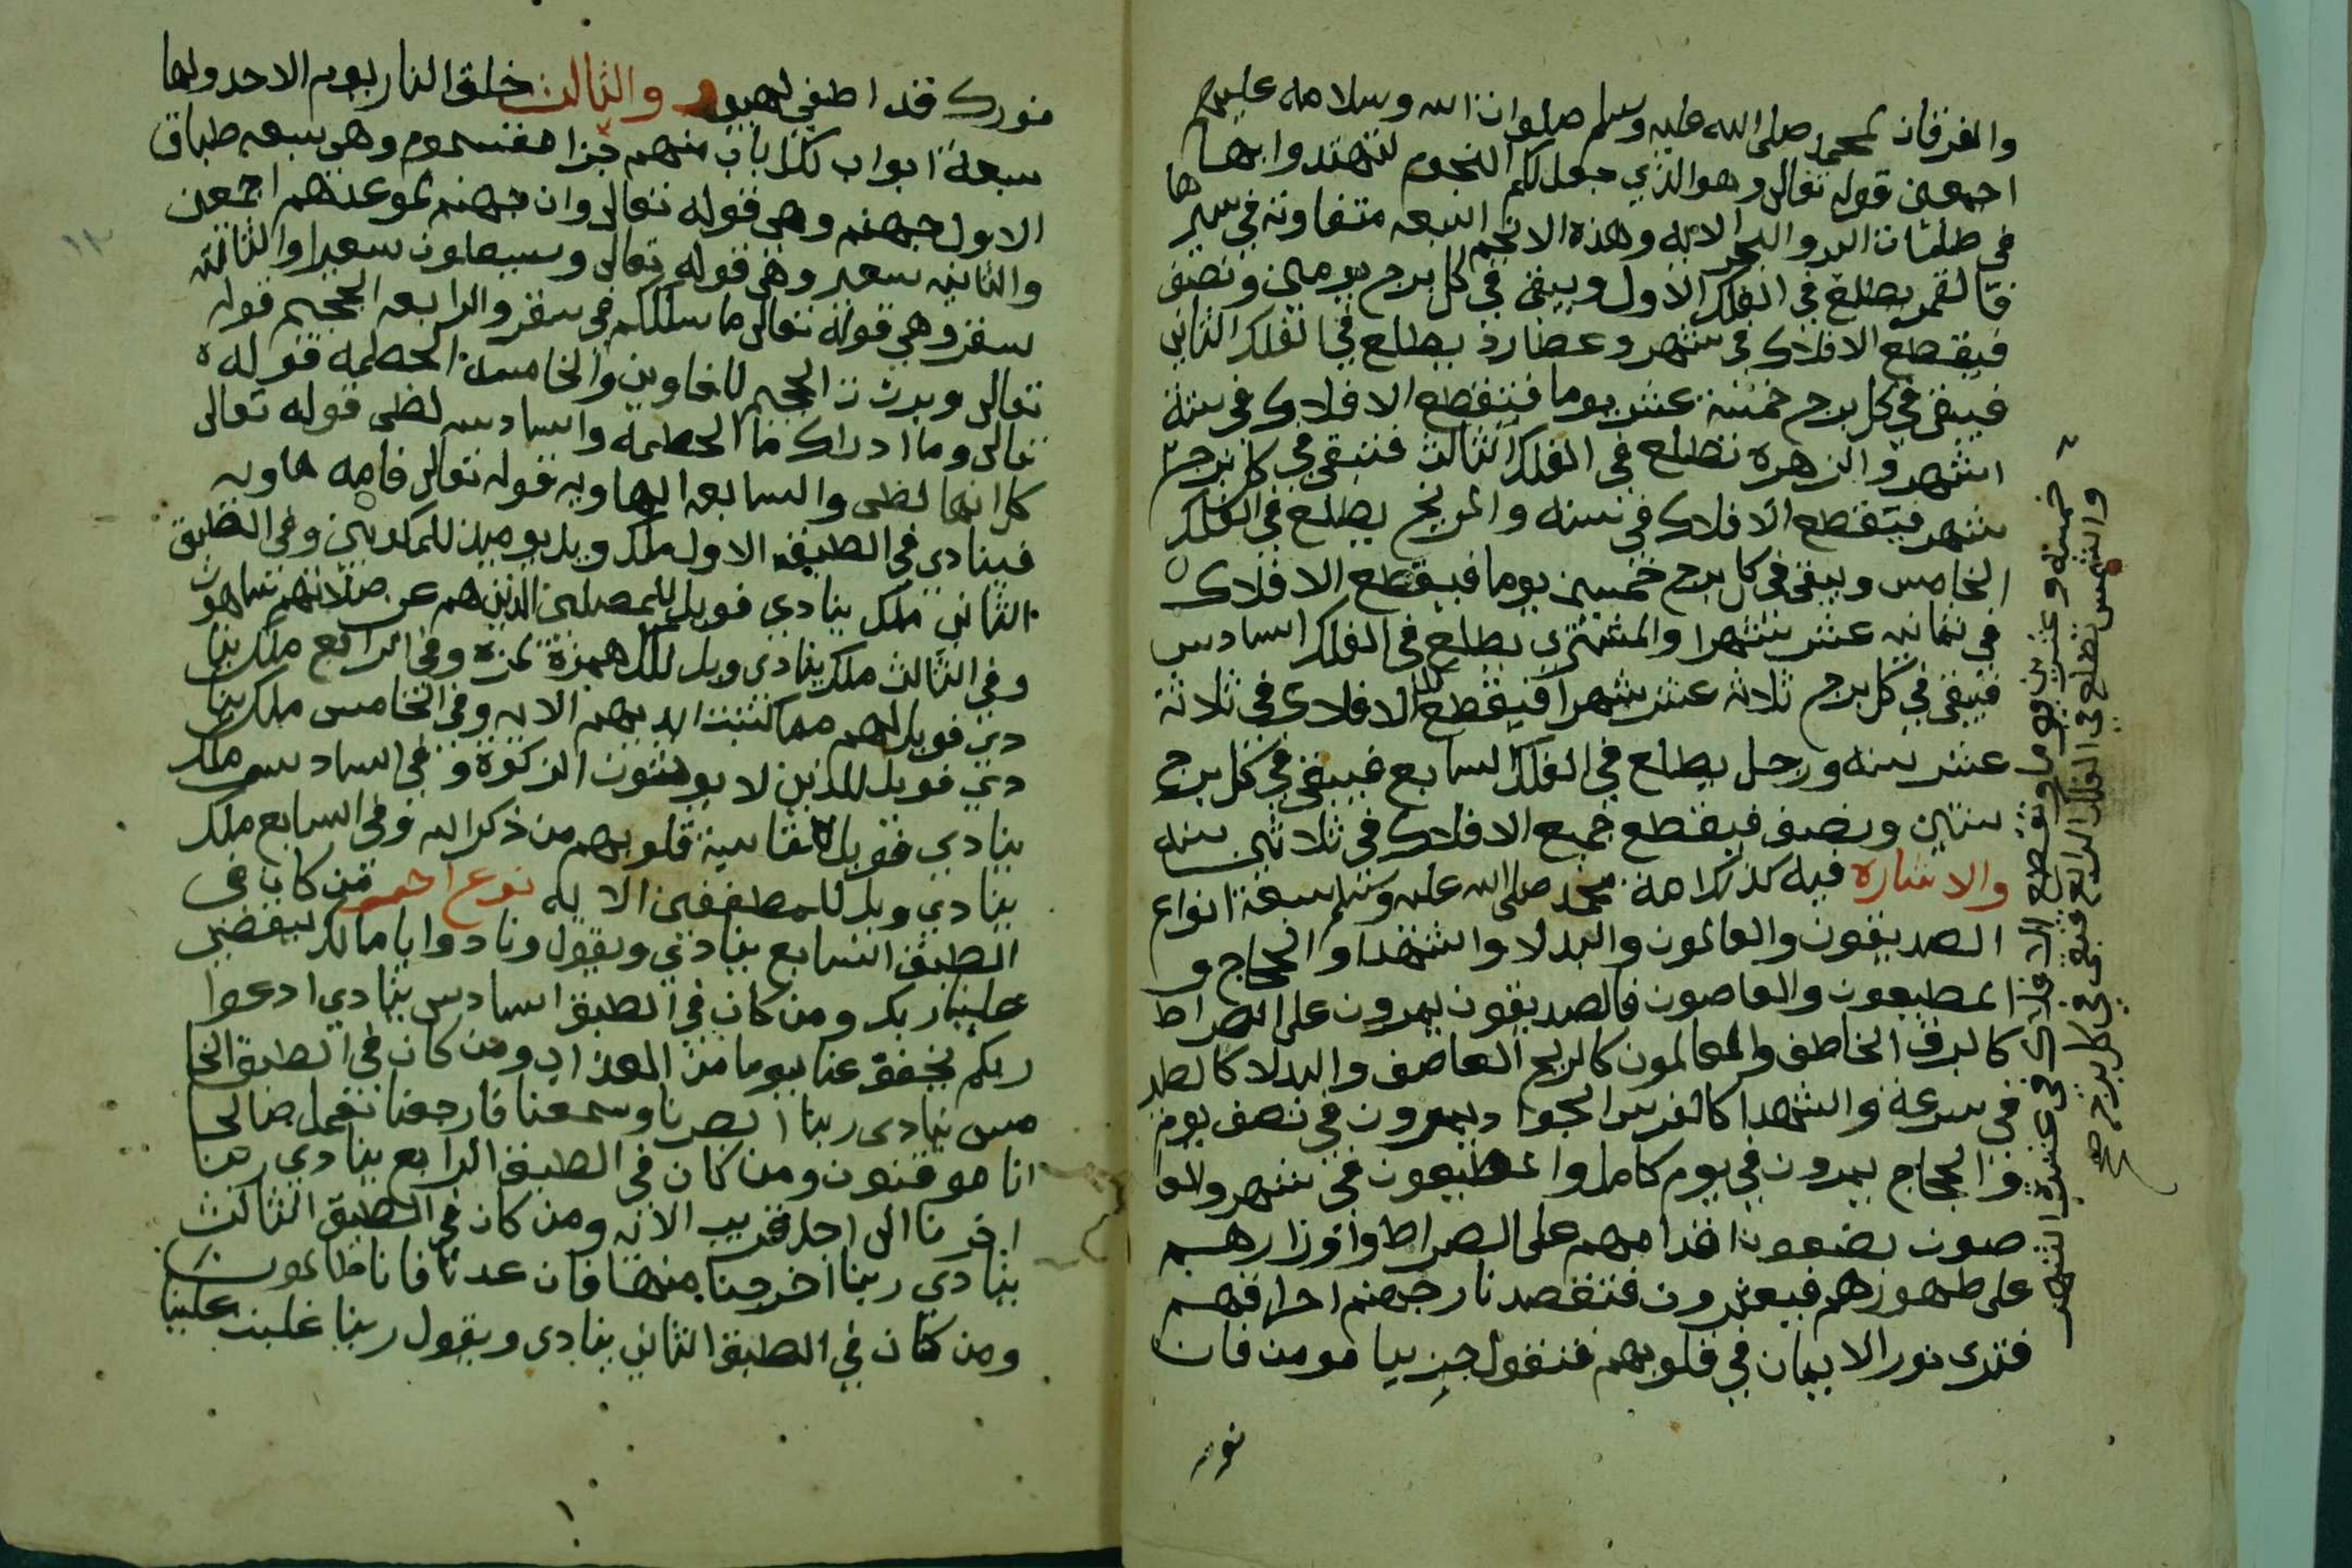 والفرقان لمحمد صلى الله عليه وسلم صلوات الله وسلامه عليهم
اجمعين قوله تعالى وهو الذي جعل لكم النجوم لتهتدوا بها
في ظلمات البر والبحر الايه وهذه الانجم السبعه متفاوته في سيرها
فالقمر يطلع في الفلك الاول ويبقى في كل برج يومين ونصف
فيقطع الافلاك في شهر وعطارد يطلع في الفلك الثاني
فيبقى في كل برج خمسة عشر يوما فيقطع الافلاك في ستة
اشهر والزهرة تطلع في الفلك الثالث فتبقى في كل برج
شهر فتقطع الافلاك في سنه والمريخ يطلع في الفلك
الخامس ويبقى في كل برج خمسين يوما فيقطع الافلاك
في ثمانيه عشر شهرا والمشتري يطلع في الفلك السادس
فيبقى في كل برج ثلاثه عشر شهرا فيقطع الافلاك في ثلاثة
عشر سنه وزحل يطلع في الفلك السابع فيبقى في كل برج
سنتين ونصف فيقطع جميع الافلاك في ثلاثين سنه
والاشاره فيه كذلك امة محمد صلى الله عليه وسلم سبعة انواع
الصديقون والعالمون والبدلا والشهدا والحجاج و
المطيعون والعاصون فالصديقون يمرون على الصراط
كالبرق الخاطف والعالمون كالريح العاصف والبدلا كالطير
في سرعة والشهدا كالفرس الجواد يمرون في نصف يوم
والحجاج يمرون في يوم كامل والمطيعون في شهر والعا
صون يضعون اقدامهم على الصراط واوزارهم
على ظهورهم فيعثرون فتقصد نار جهنم احراقهم
فترى نور الايمان في قلوبهم فتقول جز يا مومن فان
نور
والشمس تطلع في الفلك الرابع فتبقى في كل برج
خمسة وعشرين يوما وتقطع الافلاك في عشرة اشهر
صح
منورك قد اطفي لهبي والثالث خلق النار يوم الاحد ولها
سبعة ابواب لكل باب منهم جزا مقسوم وهي سبعه طباق
الاول جهنم وهي قوله تعالى وان جهنم لموعدهم اجمعين
والثانيه سعير وهي قوله تعالى وسيصلون سعيرا والثالثه
سقر وهي قوله تعالى ما سلككم في سقر والرابعه الجحيم قوله
تعالى وبرزت الجحيم للغاوين والخامسة الحطمه قوله
تعالى وما ادراك ما الحطمه والسادسه لظى قوله تعالى
كلا انها لظى والسابعه الهاويه قوله تعالى فامه هاويه
فينادي في الطبق الاول ملك ويل يوميذ للمكذبين وفي الطبق
الثاني ملك ينادي فويل للمصلين الذين هم عن صلاتهم ساهون
وفي الثالث ملك ينادي ويل لكل همزة لمزه وفي الرابع ملك ينا
دي فويل لهم مما كتبت ايديهم الايه وفي الخامس ملك ينا
دي فويل للذين لا يوتون الزكوة وفي السادس ملك
ينادي فويل للقاسية قلوبهم من ذكر الله وفي السابع ملك
ينادي ويل للمطففين الايه نوع اخر من كان في
الطبق السابع ينادي ويقول ونادوا يا مالك ليقض
علينا ربك ومن كان في الطبق السادس ينادي ادعوا
ربكم يخفف عنا يوما من العذاب ومن كان في الطبق الخا
مس ينادى ربنا ابصرنا وسمعنا فارجعنا نعمل صالحا
انا موقنون ومن كان في الطبق الرابع ينادي ربنا
اخرنا الى اجل قريب الايه ومن كان في الطبق الثالث
ينادي ربنا اخرجنا منها فان عدنا فانا ظالمون
ومن كان في الطبق الثاني ينادى ويقول ربنا غلبت علينا